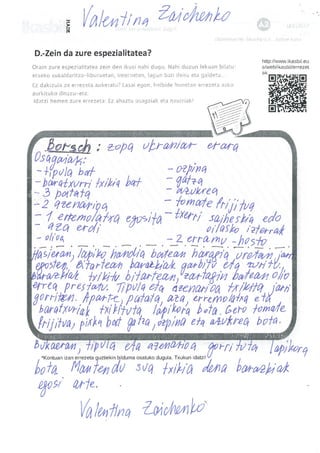 Valentina Zaichenko
ikasbil
A2
D.-Zein da zure espezialitatea?
Orain zure espezialitatea zein den ikusi nahi dugu. Nahi duzun lekuan bilatu:
etxeko sukaldaritza-liburuetan, interneten, lagun bati deitu eta galdetu...
Ez dakizula zer errezeta aukeratu? Lasai egon, hribide honetan errezeta asko
aurkituko dituzu-eta.
Idatzi hemen zure errezeta! Ez ahaztu osagaiak eta neurriak!
http://www.ikasbil.eu
Borsch: zopa ukraniar erara
Osagaiak:
- tipula bat
- baratxurri txikia bat
- 3 patata
- 2 azenarioa
- 1 erremolatxa egosita
- aza erdi
- olioa
- ozpina
- gatza
- azukrea
- tomate frijitua
- txerri saiheskia edo
oilasko izterrak
- 2 erramu-hosto
Hasieran, lapiko handia batean haragia uretan jarri
egosten. Bitartean barazkiak garbitu eta zuritu.
Barazkiak txikitu bitartean, zartagin batean olio
erre prestatu. Tipula eta azenarioa txikitu, jarri
gorritzen. Aparte, patata, aza, erremolatxa eta
baratxuriak txikituta lapikora bota. Gero tomate
frijitua, pixka bat gatza, ozpina eta azukrea bota.
Bukaeran, tipula eta azenarioa gorrituta lapikora
*Kontuan izan errezeta guztiekin bilduma osatuko dugula. Txukun idatzi!
bota. Mantendu sua txikia dena barazkiak
egosi arte.
Valentina Zaichenko